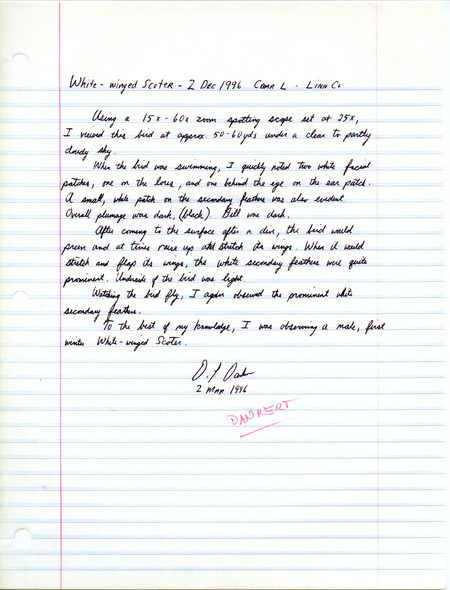 White-winged Scoter - 2 Dec 1996 Cedar L - Linn Co
Using a 15x-60x zoom spotting scope set at 25x,
I viewed this bird at approx. 50-60yds under a clear to partly
cloudy sky.
When the bird was swimming, I quickly noted two white facial
patches, one on the lores, and one behind the eye on the ear patch.
A small, white patch on the secondary feathers was also evident.
Overall plumage was dark, (black). Bill was dark.
After coming to the surface after a dive, the bird would
preen and at times raise up and stretch its wings. When it would
stretch and flap its wings, the white secondary feathers were quite
prominent. Underside of the bird was light.
Watching the bird fly, I again observed the prominent white
secondary feathers.
To the best of my knowledge, I was observing a male, first
winter White-winged Scoter.
2 Mar 1996
DANKERT